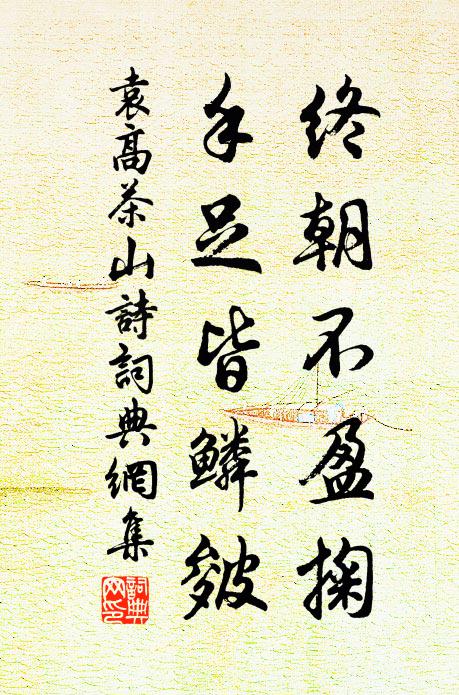 終朝不盈掬
手足皆鱗皴
袁高茶山詩詞典網集
詞典網印